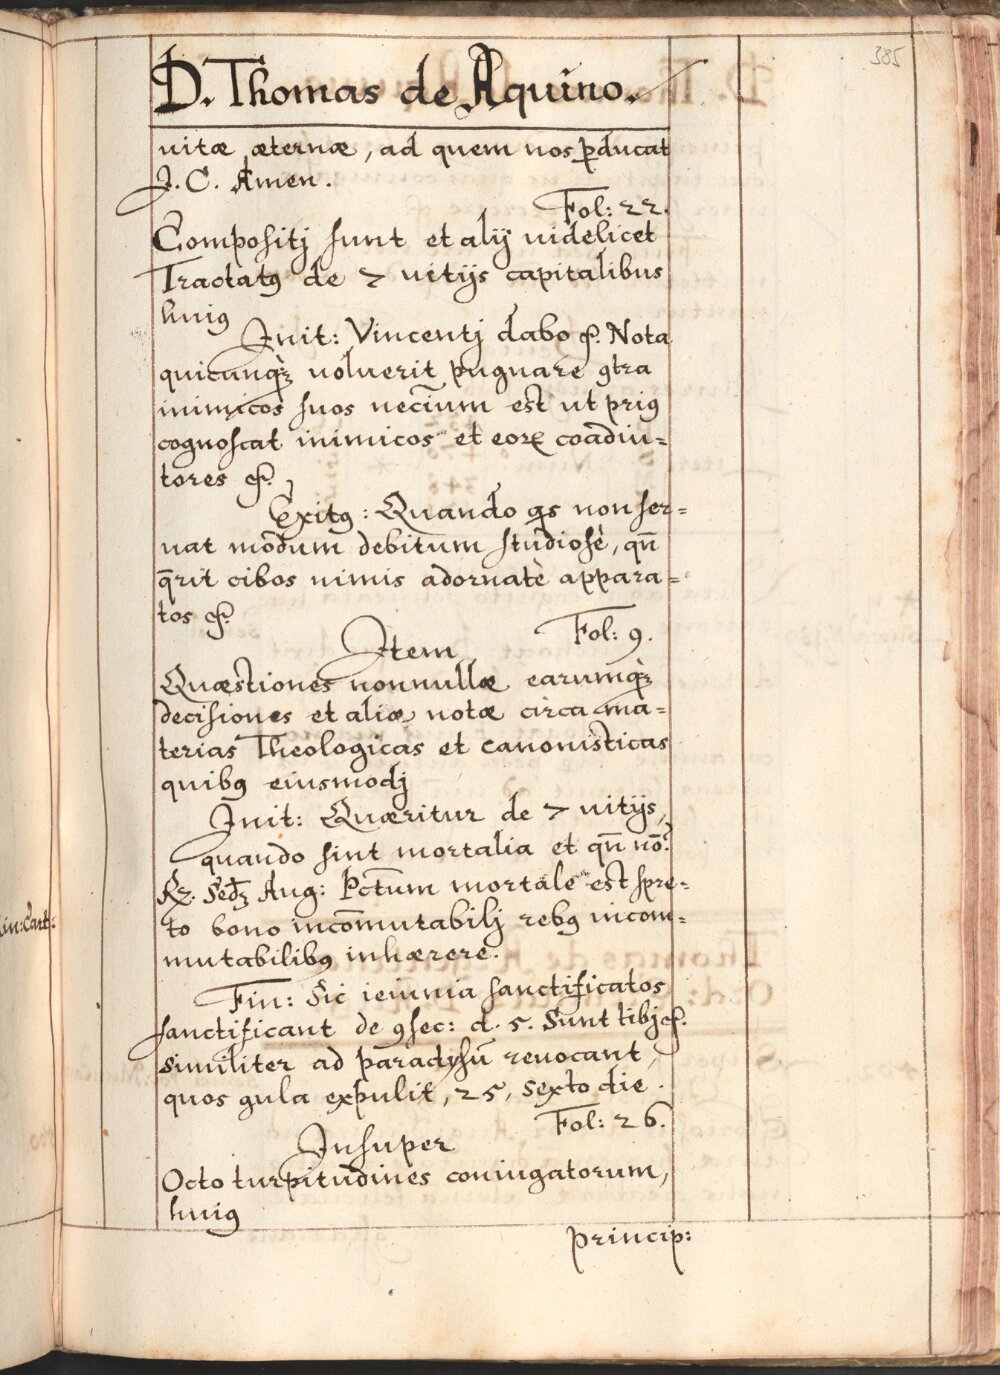 385
D. Thomas de Aquino.
uitæ æternæ, ad quem nos ꝑducat
J. C. Amen.
Fol: 22.
Compositj sunt et alij uidelicet
Tractatꝰ de 7 uitijs capitalibus
huiꝰ
Init: Vincentj dabo ꝛc. Nota
quicunqꝫ uoluerit pugnare ꝯtra
inimicos suos nec̃ium est ut priꝰ
cognoscat inimicos et eorꝝ coadiu=
tores ꝛc.
Exitꝰ: Quando qs non ser=
uat modum debitum studiosè, qn̄
q̄rit cibos nimis adornatè appara=
tos ꝛc.
Fol: 9.
Item
Quæstiones nonnullæ earumqꝫ
decisiones et aliæ notæ circa ma=
terias Theologicas et canonisticas
quibꝰ eiusmodj
Init: Quæritur de 7 uitijs,
quando sint mortalia et qn̄ nō?
℞. Sedꝫ Aug: Pctum mortale est spre=
to bono incōmutabilj rebꝰ incom=
mutabilibꝰ inhærere.
Fin: Sic ieiunia sanctificatos
sanctificant de ꝯsec: d. 5. Sunt tibj ꝛc.
Similiter ad paradysū reuocant,
quos gula expulit, 25, sexto die.
Fol: 26.
Insuper
Octo turpitudines coniugatorum,
huiꝰ
princip:
in: Cart: